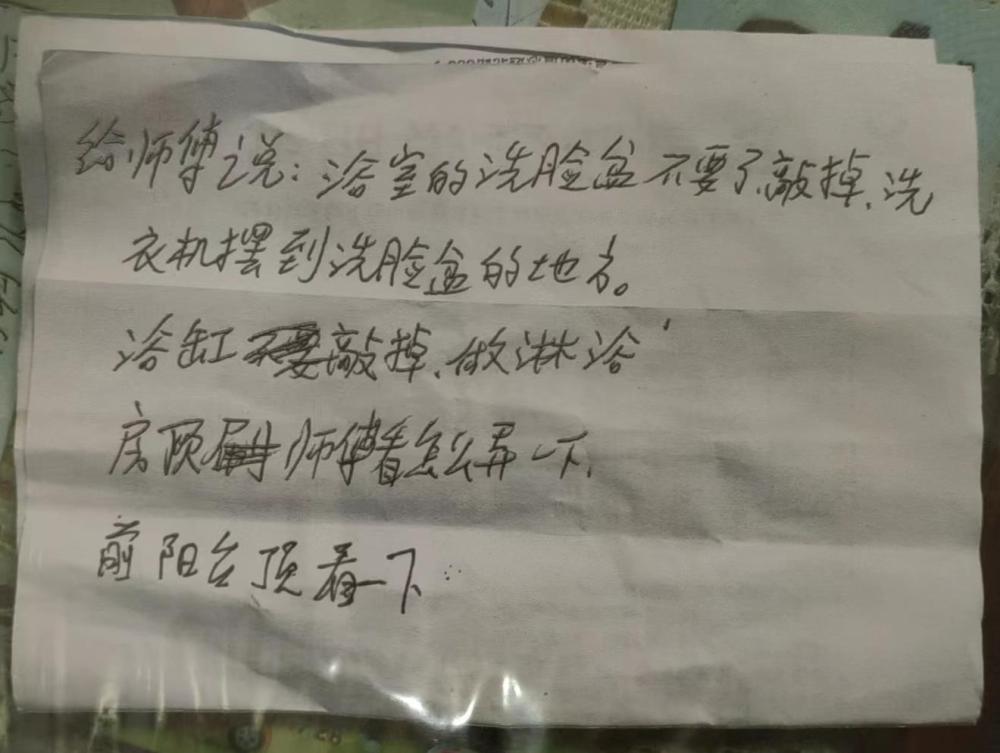 给师傅说：浴室的洗脸盆不要了敲掉、洗
衣机摆到洗脸盆的地方。
浴缸不要敲掉、做淋浴
房顶师傅看怎么弄一下、
前阳台顶看一下